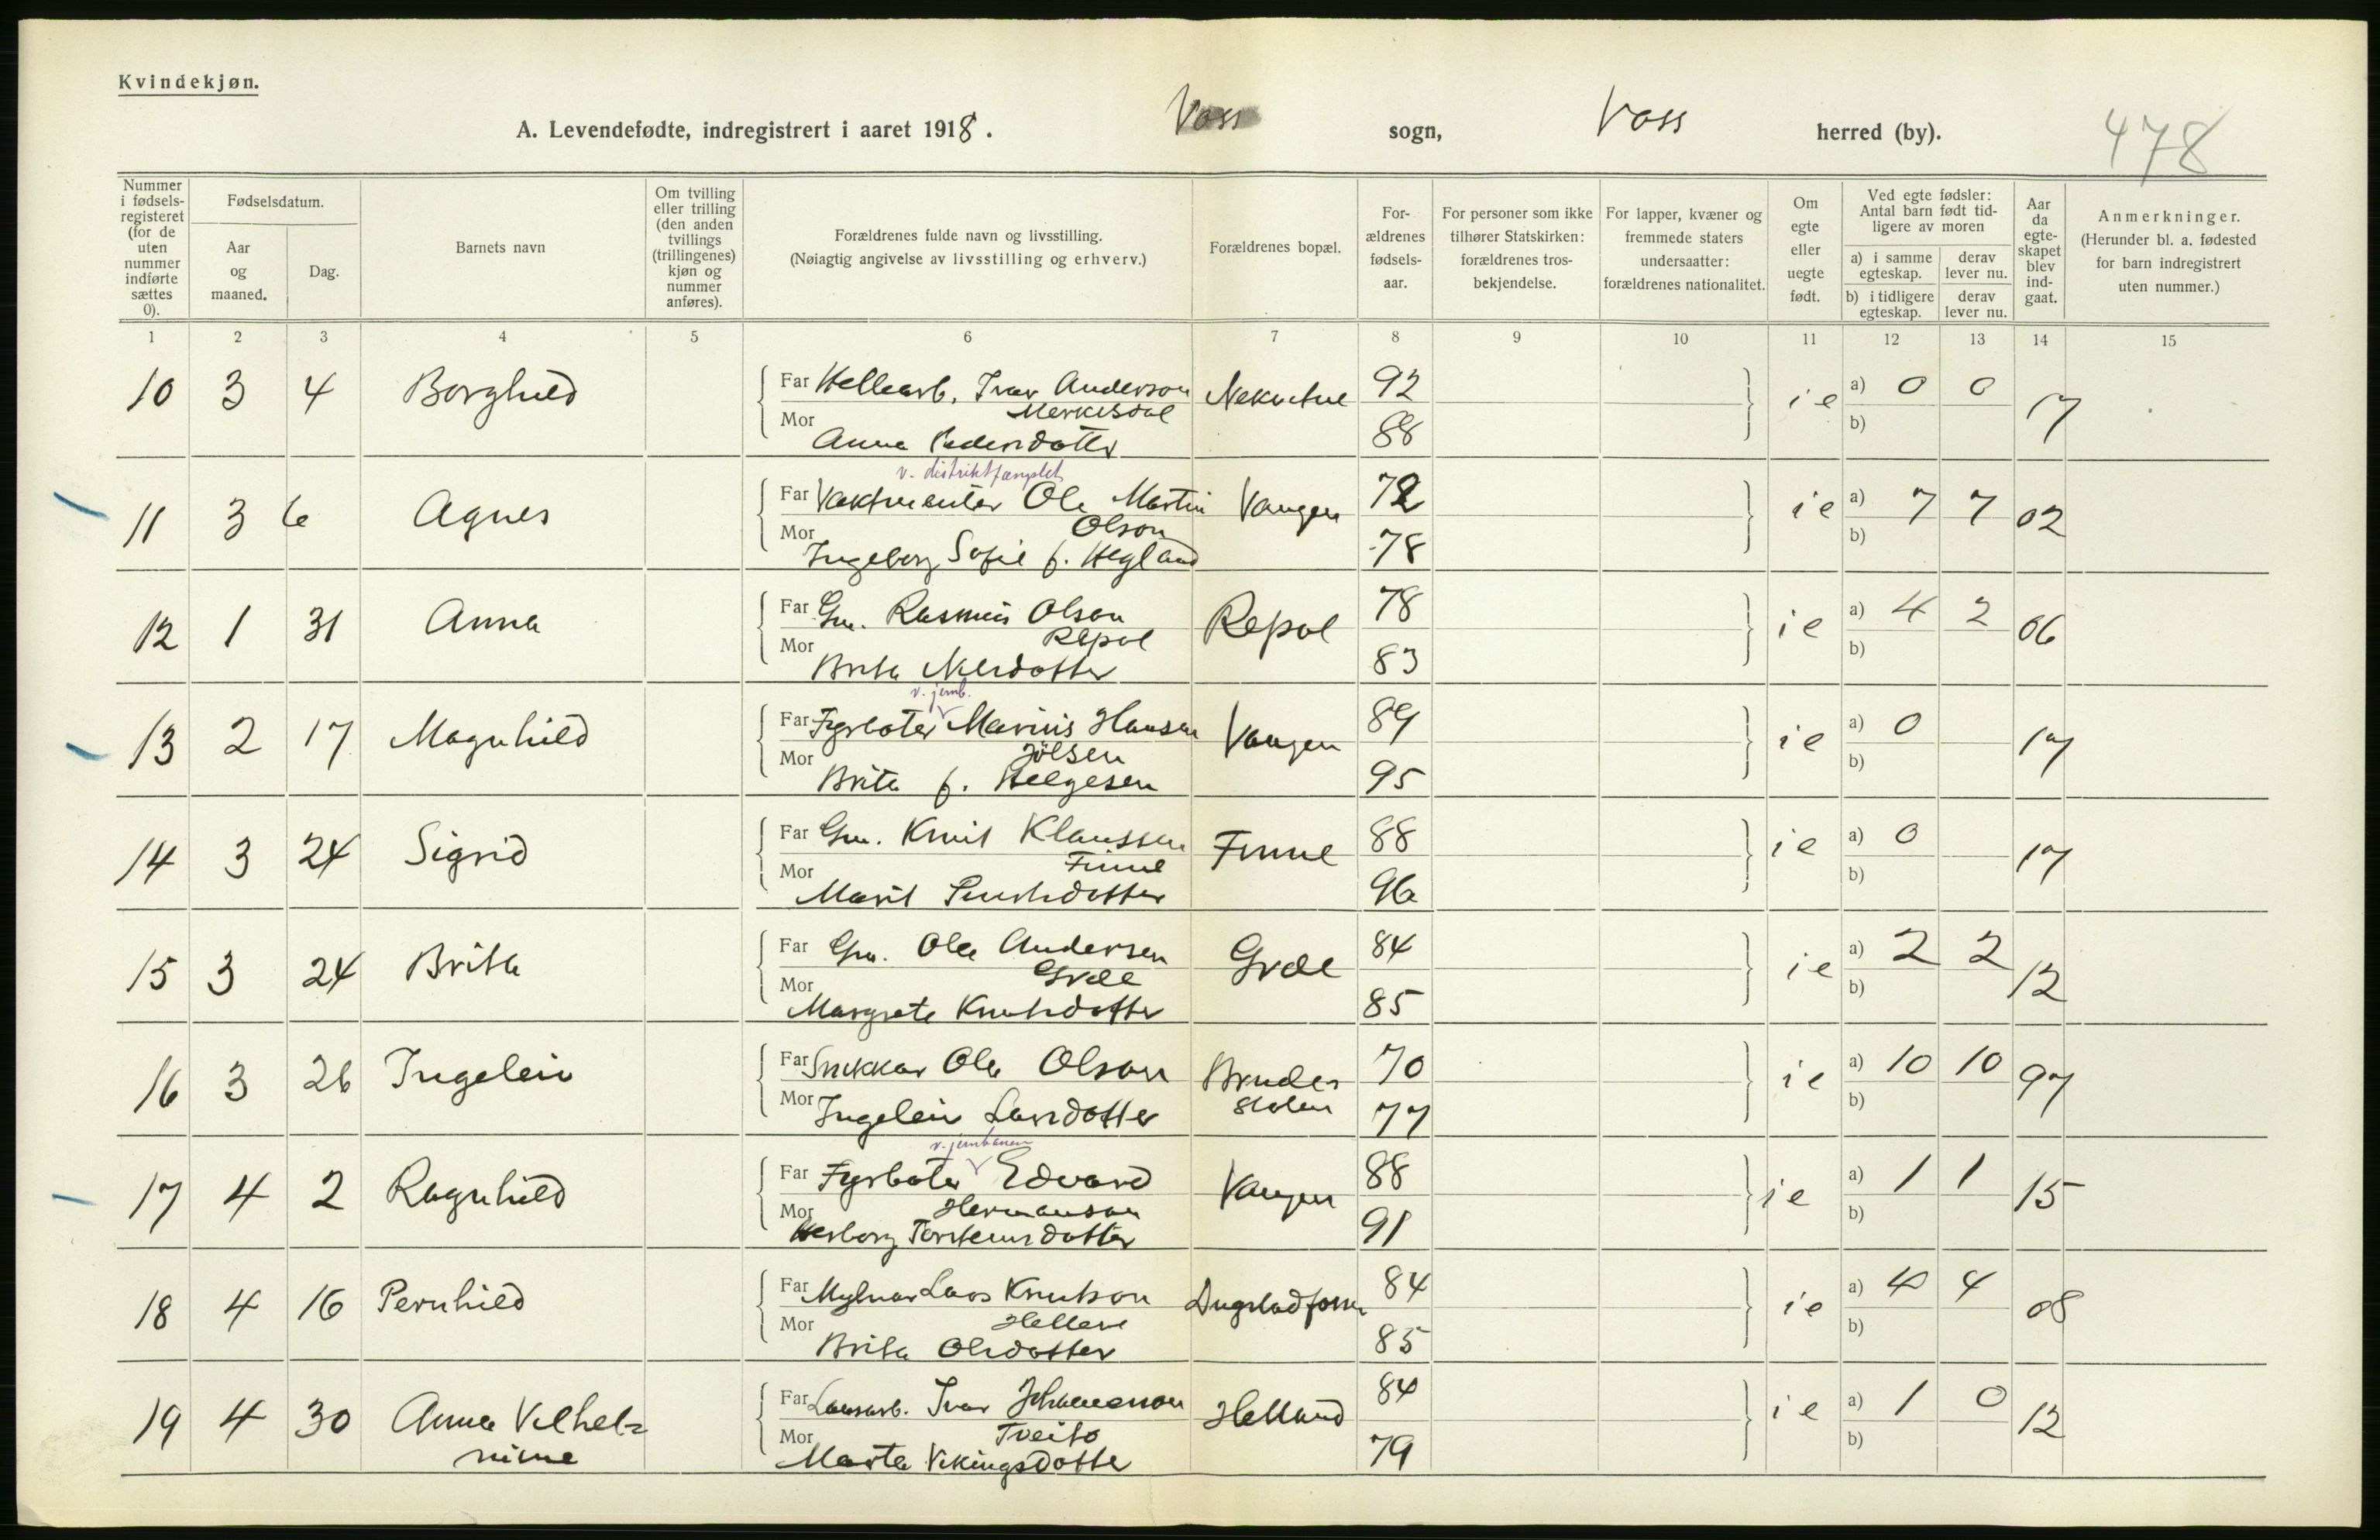 Kvindekjøn.
A. Levendefødte, indregistrert i aaret 1918. Voss sogn, Voss herred (by). 478
Nummer i fødsels-registeret (for de uten nummer indførte sættes 0).
Fødselsdatum.
Aar og maaned.
Dag.
Barnets navn
Om tvilling eller trilling (den anden tvillings (trillingenes) kjøn og nummer anføres).
Forældrenes fulde navn og livsstilling.
(Nøiagtig angivelse av livsstilling og erhverv.)
Forældrenes bopæl.
For-ældrenes fødsels-aar.
For personer som ikke tilhører Statskirken: forældrenes tros-bekjendelse.
For lapper, kvæner og fremmede staters undersaatter: forældrenes nationalitet.
Om egte eller uegte født.
Ved egte fødsler: Antal barn født tid-ligere av moren
a) i samme egteskap.
derav lever nu.
b) i tidligere egteskap.
derav lever nu.
Aar da egte-skapet blev ind-gaat.
Anmerkninger.
(Herunder bl. a. fødested for barn indregistrert uten nummer.)
1 2 3 4 5 6 7 8 9 10 11 12 13 14 15
10 3 4 Borghild Far Ivar Anderson 92 ie a) 0 0 17
Mor b)
Anna Pedersdotter 88
v. distriktfængslet
11 3 6 Agnes Far Vaktmester Ole Martin Vangen 72 ie a) 7 7 02
Mor Olson b)
Ingeborg Sofie f. Hegland 78
12 1 31 Anna Far Gm. Rasmus Olson Repål 78 ie a) 4 2 06
Mor Repål b)
Brita Nilsdotter 83
v. jernb.
13 2 17 Magnhild Far Fyrbøter Marius Hansen Vangen 89 ie a) 0 17
Mor Jölsen b)
Brita f. Helgesen 95
14 3 24 Sigrid Far Gm. Knut Klaussen Finne 88 ie a) 0 17
Mor Finne b)
Marit 96
15 3 24 Brita Far Gm. Ole Andersen Gjelle 84 ie a) 2 2 12
Mor b)
Margreta Knutsdotter 85
16 3 26 Ingeleiv Far Snikkar Ole Olson 70 ie a) 10 10 97
Mor Ingeleiv Larsdotter 77 b)
v. jernbanen
17 4 2 Ragnhild Far Fyrbøter Edvard Vangen 88 ie a) 1 1 15
Mor Hermanson b)
Herborg Torsteinsdotter 91
18 4 16 Pernhild Far Mylnar Lars Knutson Dugstadfossen 84 ie a) 4 4 08
Mor Hellere b)
Brita Olsdotter 85
19 4 30 Anna Vilhel= Far Lausarb. Ivar Johanneson Helland 84 ie a) 1 0 12
mine Mor Tveito b)
Marta Vikingsdotter 79